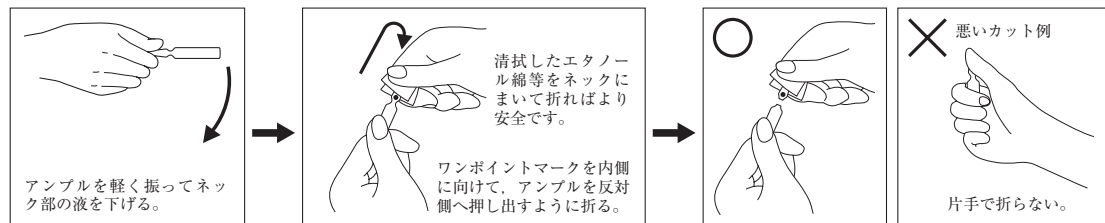 アンプルを軽く振ってネッ
ク部の液を下げる。
清拭したエタノー
ル綿等をネックに
まいて折ればより
安全です。
ワンポイントマークを内側
に向けて，アンプルを反対
側へ押し出すように折る。
悪いカット例
片手で折らない。